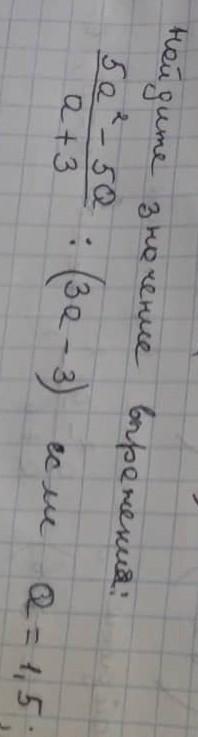 найдите значение выражения:
5a² - 5a
a + 3
: (3a - 3) если a = 1,5;